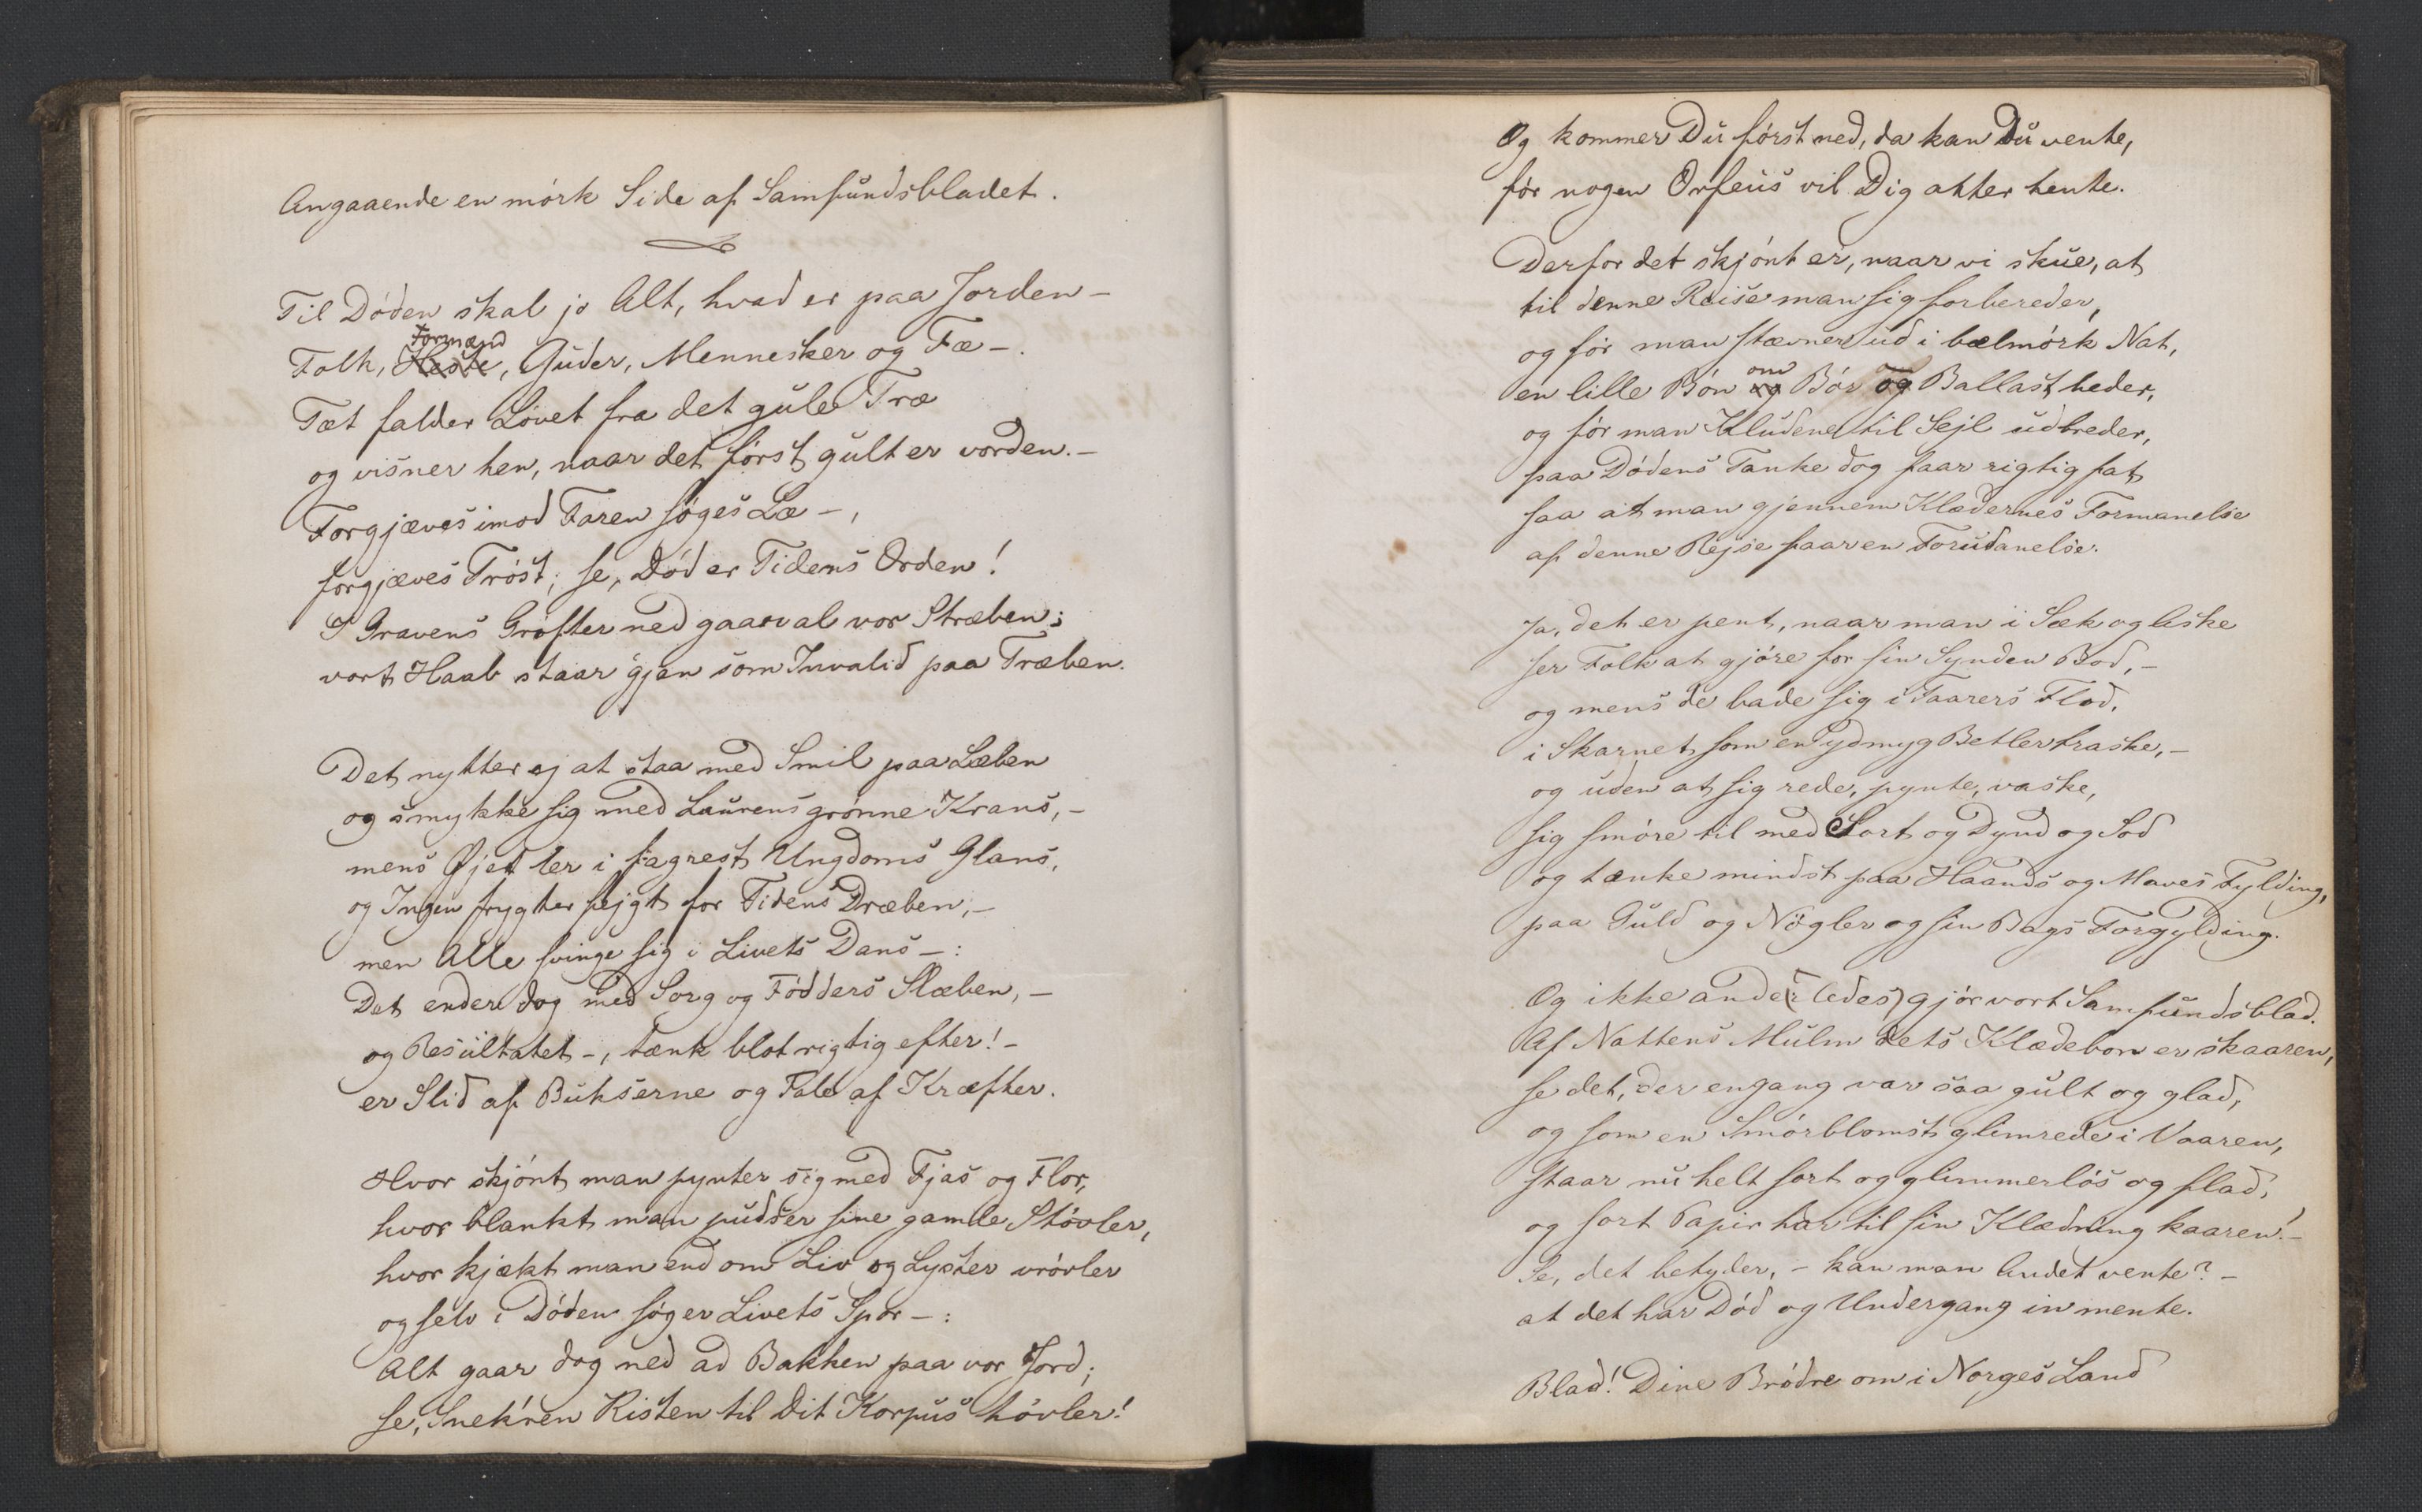 Angaaende en mörk Side af Samfundsbladet.
Til Döden skal jo Alt, hvad er paa Jorden –
Formænd
Folk, Heste, Guder, Mennesker og Fæ –.
Tæt falder Lövet fra det gule Træ
og visner hen, naar det först gult er vorden. –
Forgjæves imod Faren söges Læ –,
forgjæves Tröst; se, Död er Tidens Orden!
I Gravens Gröfter ned gaar al vor Stræben;
vort Haab staar 'gjen som Invalid paa Træben.
Det nytter ej at staa med Smil paa Læben
og smykke sig med Laurens grönne Krans, –
mens Øjet ler i fagrest Ungdoms Glans,
og Ingen frygter fejgt for Tidens Dræben, –
men Alle svinge sig i Livets Dans –:
Det ender dog med Sorg og Födders Slæben, –
og Resultatet –, tænk blot rigtig efter! –
er Slid af Bukserne og Tab af Kræfter.
Hvor skjönt man pynter sig med Fjas og Flor,
hvor blankt man pudser sine gamle Stövler,
hvor kjækt man end om Liv og Lyster vrövler
og selv i Döden söger Livets Spor –:
Alt gaar dog ned ad Bakken paa vor Jord;
se, Snek'ren Kisten til Dit Korpus hövler!
Og kommer Du först ned, da kan Du vente,
för nogen Orfeus vil Dig atter hente.
Derfor det skjönt er, naar vi skue, at
til denne Reise man sig forbereder,
og för man stævner ud i bælmörk Nat,
om
en lille Bön og Bör og Ballast beder,
og för man Kludene til Sejl udbreder,
paa Dödens Tanke dog faar rigtig fat
saa at man gjennem Klædernes Formanelse
af denne Rejse faar en Forudanelse.
Ja, det er pent, naar man i Sæk og Aske
ser Folk at gjöre for sin Synden Bod, –
og mens de bade sig i Taarers Flod,
i Skarnet som en ydmyg Betler traske, –
og uden at sig rede, pynte, vaske,
sig smöre til med Sort og Dynd og Sod
og tænke mindst paa Haands og Maves Fylding,
paa Guld og Nögler og sin Bags Forgylding.
Og ikke ande(r ledes) gjör vort Samfundsblad.
Af Nattens Mulm dets Klædebon er skaaren,
se det, der engang var saa gult og glad,
og som en Smörblomst glimrede i Vaaren,
staar nu helt sort og glimmerlös og flad,
og sort Papir har til sin Klædning kaaren! –
Se, det betyder, – kan man Andet vente? –
at det har Död og Undergang in mente.
Blad! Dine Brödre om i Norges Land